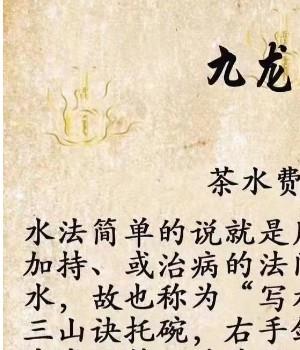 九龙
茶水费
水法简单的说就是
加持、或治病的法
水，故也称为“写
三山诀托碗，右手